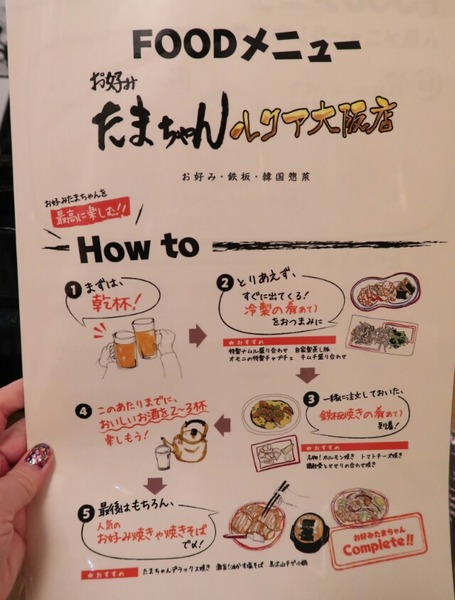 FOODメニュー
お好み
たまちゃん ルクア大阪店
お好み・鉄板・韓国惣菜
お好みたまちゃんを
最高に楽しむ!!
How to
1 まずは、
乾杯!
2 とりあえず、
すぐに出てくる!
冷製の肴(あて)
をおつまみに
●おすすめ
特製ナムル盛り合わせ 自家製蒸し豚
オモニの特製チャプチェ キムチ盛り合わせ
3 一緒に注文しておいた、
鉄板焼きの肴(あて)
到着!
●おすすめ
名物!ホルモン焼き トマトチーズ焼き
4 このあたりまでに、
おいしいお酒を2〜3杯
楽しもう!
5 最後はもちろん、
人気の
お好み焼きや焼きそば
で〆!
●おすすめ
たまちゃんデラックス焼き 激旨!油かす塩そば
お好みたまちゃん
Complete!!